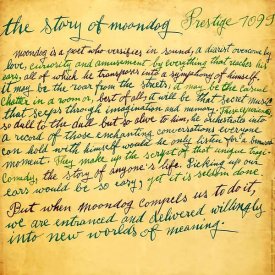 the story of moondog Prestige 1099
moondog is a poet who versifies in sound, a diarist overcome by
love, curiosity and amusement by everything that reaches his
ears, all of which he transposes into a symphony of himself.
it may be the roar from the streets, it may be the casual
chatter in a room or, best of all, it will be that secret music
that seeps through imagination and memory. These experiences,
so dull to the dull but so alive to him, he orchestrates into
a record of those enchanting conversations everyone
can hold with himself would he only listen for a
moment. They make up the script of that unique tragi-
comedy, the story of anyone's life. Picking up our
ears would be so easy, yet it is seldom done
But when moondog compels us to do it,
we are entranced and delivered willingly
into new worlds of meaning.